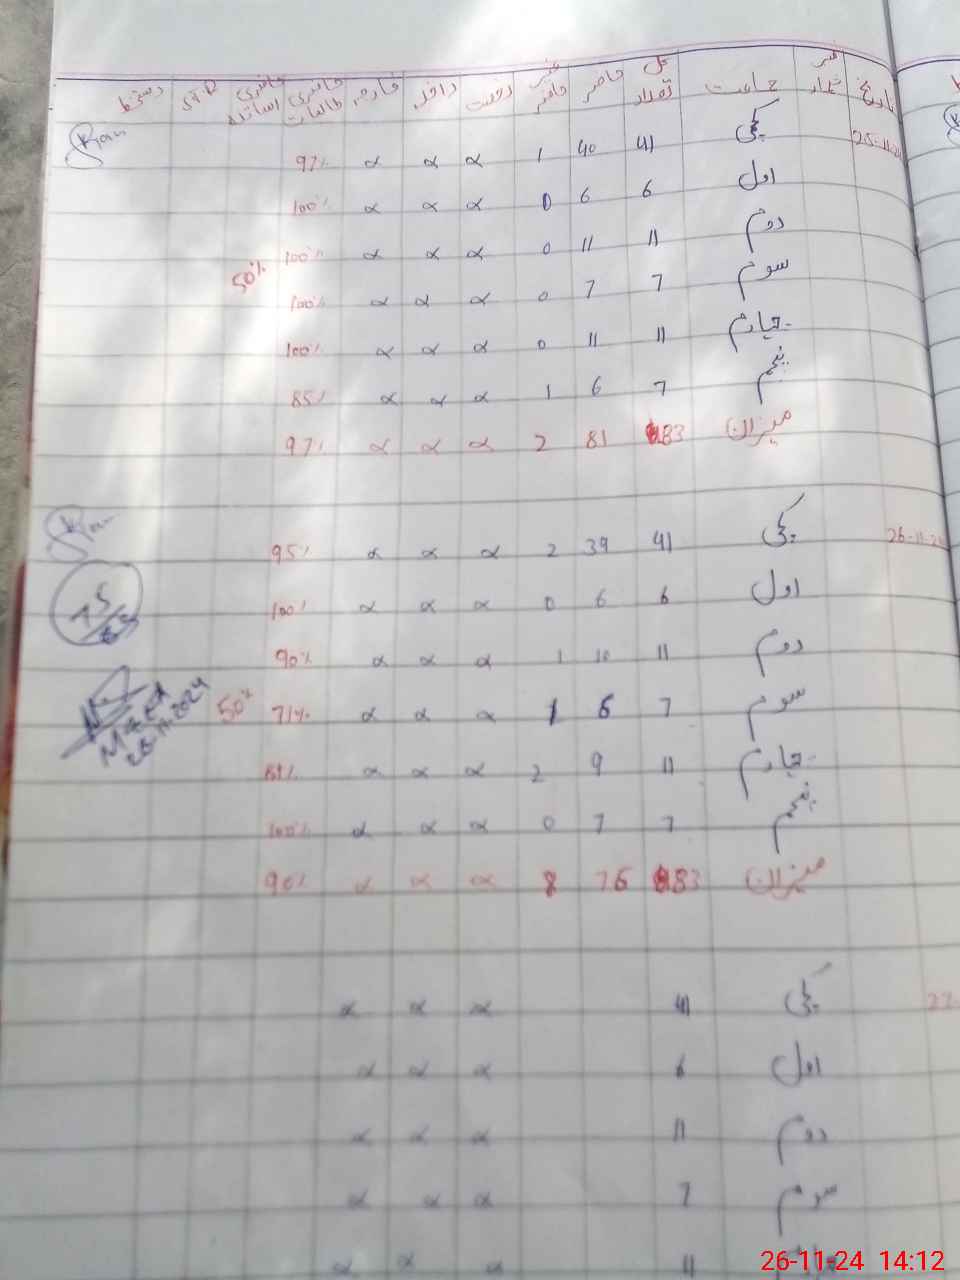 تاریخ نمبر شمار جماعت کل تعداد حاضر غیر حاضر رخصت داخل خارجہ حاضری طالبات حاضری اساتذہ دستخط
25-11-24 کچی 41 40 1 α α α 97%
اول 6 6 0 α α α 100%
دوم 11 11 0 α α α 100%
سوم 7 7 0 α α α 100% 50%
چہارم 11 11 0 α α α 100%
پنجم 7 6 1 α α α 85%
میزان 83 81 2 α α α 97%
26-11-24 کچی 41 39 2 α α α 95%
اول 6 6 0 α α α 100%
دوم 11 10 1 α α α 90%
سوم 7 6 1 α α α 71% 50%
چہارم 11 9 2 α α α 81%
پنجم 7 7 0 α α α 100%
میزان 83 76 8 α α α 90%
26.11.2024
کچی 41 α α α
اول 6 α α α
دوم 11 α α α
سوم 7 α α α
11 α α α
26-11-24 14:12